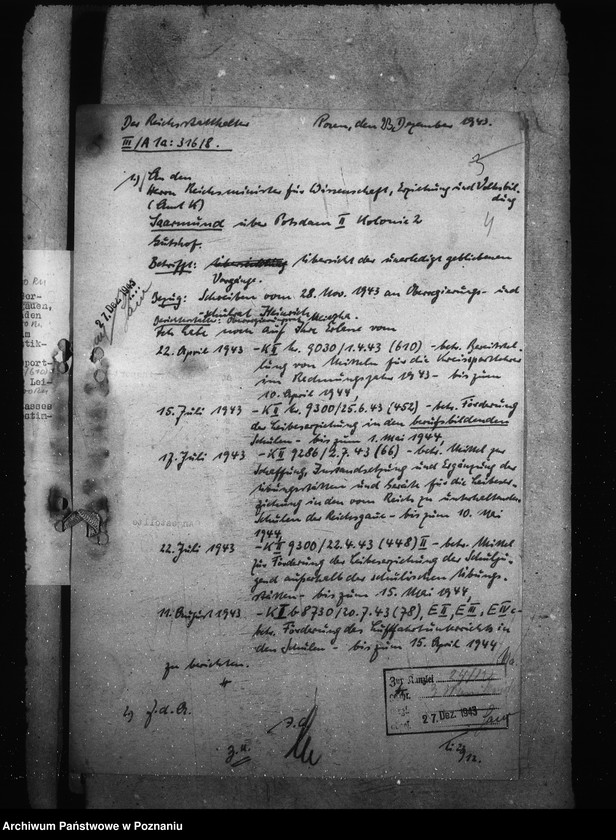 Der Reichsstatthalter Posen, den 23. Dezember 1943.
III/A 1a: 316/8.
1) An den
Herrn Reichsminister für Wissenschaft, Erziehung und Volksbil-
dung
(Amt K)
Saarmund über Potsdam II Kolonie 2
Gutshof.
Betrifft: Übersicht der unerledigt gebliebenen
Vorgänge.
Bezug: Schreiben vom 28. Nov. 1943 an Oberregierungs- und
-schulrat Heinrich
Ich habe nun auf Ihre Erlasse vom
22. April 1943 - K II Nr. 9030/1.4.43 (610) - betr. Bereitstel-
lung von Mitteln für die Kreissportlehrer
im Rechnungsjahr 1943 - bis zum
10. April 1944,
15. Juli 1943 - K II Nr. 9300/25.6.43 (452) - betr. Förderung
der Leibeserziehung in den berufsbildenden
Schulen - bis zum 1. Mai 1944,
17. Juli 1943 - K II 9286/2.7.43 (66) - betr. Mittel zur
Schaffung, Instandsetzung und Ergänzung der
Übungsstätten und Geräte für die Leibeser-
ziehung in den vom Reich zu unterhaltenden
Schulen des Reichsgaues - bis zum 10. Mai
1944,
22. Juli 1943 - K II 9300/22.4.43 (448) II - betr. Mittel
zur Förderung der Leibeserziehung der Schulju-
gend außerhalb der schulischen Übungs-
stätten - bis zum 15. Mai 1944,
11. August 1943 - K I b 8730/20.7.43 (78), E II, E III, E IV -
betr. Förderung des Luftfahrtunterrichts in
den Schulen - bis zum 15. April 1944
zu berichten.
2) Z. d. A.
27. Dez. 1943
Zur Kanzlei
27. Dez. 1943
Archiwum Państwowe w Poznaniu